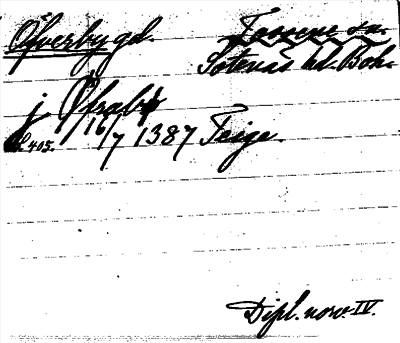 Överby gd. Tossene sn.
Sotenäs hd. Boh.
j Øfraby
s. 405. 16/7 1387 Taige
Dipl. norv. IV.